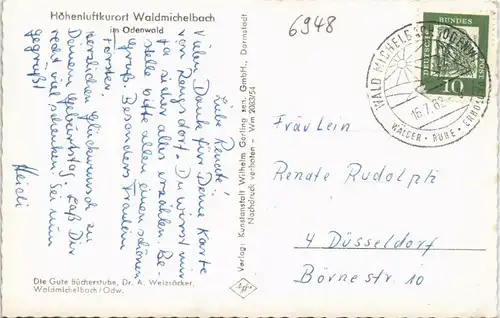 Höhenluftkurort Waldmichelbach
im Odenwald
6948
Liebe Renate!
Vielen Dank für Deine Karte
von Rengsdorf. Du wirst mir
ja sicher alles erzählen. Be-
stelle bitte allen einen schönen
Gruß. Besonders Fräulein
Forster.
Herzlichen Glückwunsch zu
Deinem Geburtstag. Laß Dir
recht viel schenken. Sei nun
gegrüßt
Heidi
Die Gute Bücherstube, Dr. A. Weizsäcker,
Waldmichelbach/Odw.
Verlag: Kunstanstalt Wilhelm Gerling sen. GmbH., Darmstadt
Nachdruck verboten – Wm 2083/54
DEUTSCHE
BUNDES
10
WALD-MICHELBACH ODENW
16.7.63
WÄLDER · RUHE ·
Fräulein
Renate Rudolph
4 Düsseldorf
Börnestr. 10